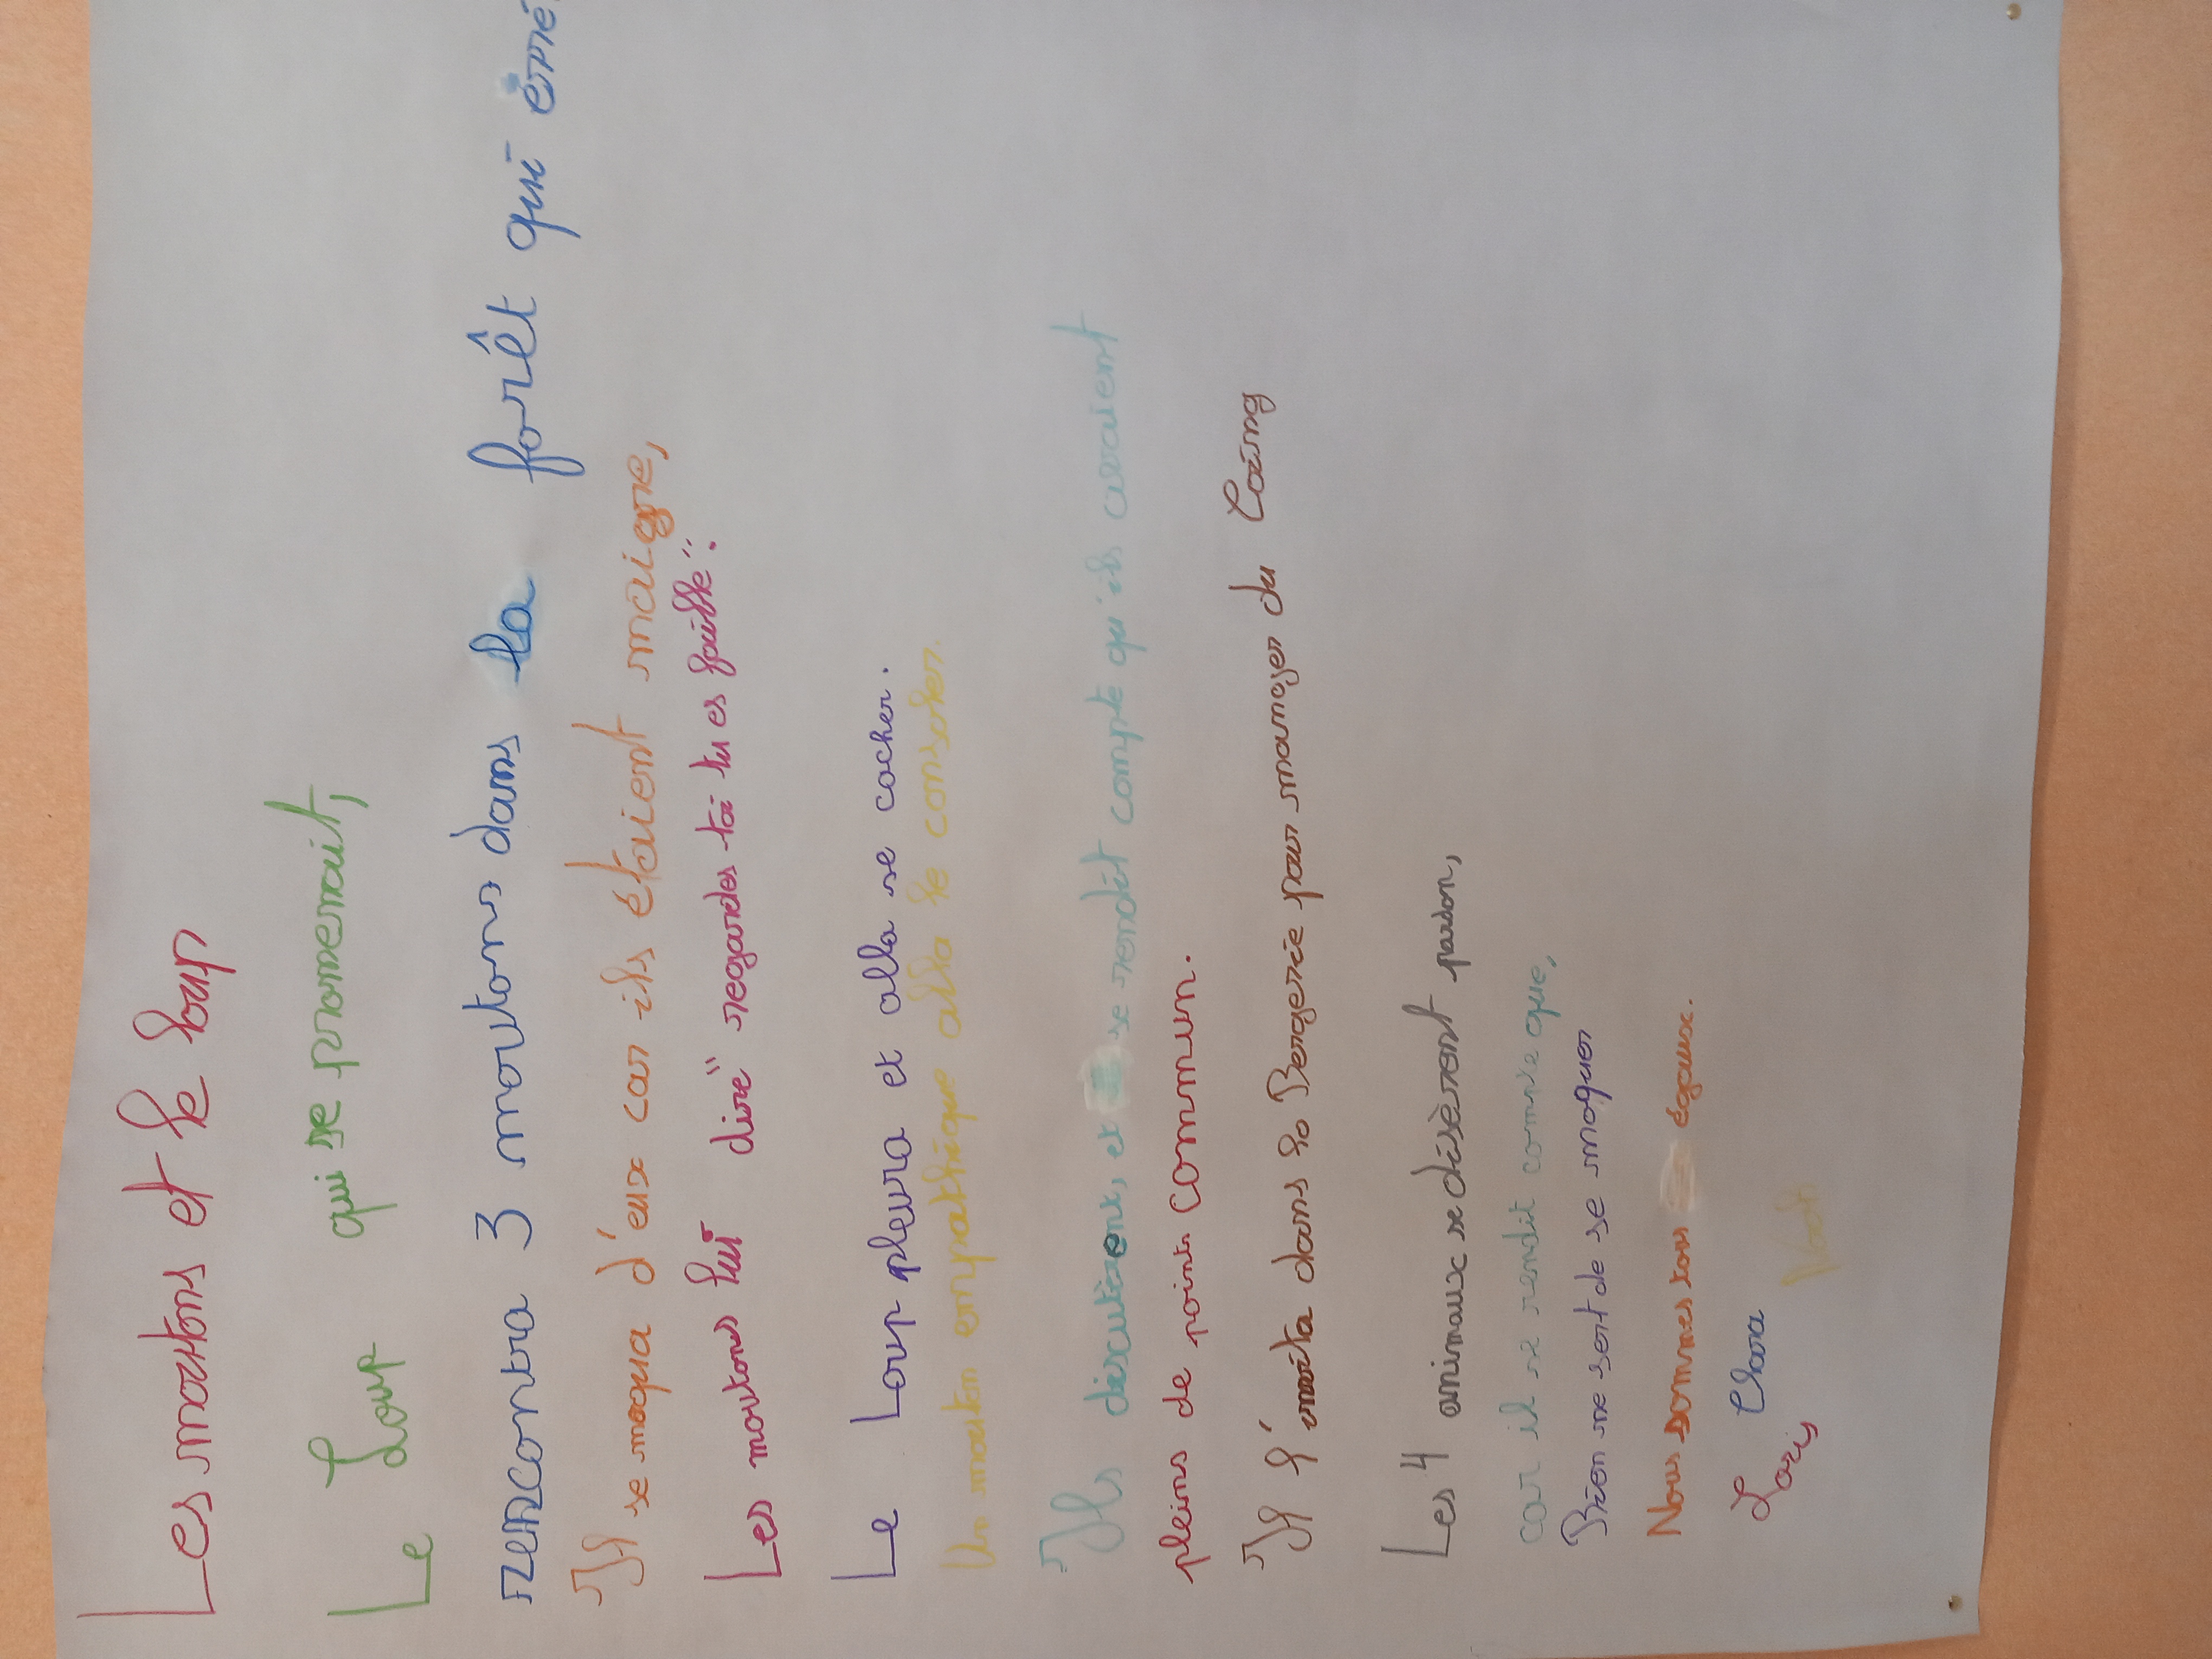 Les moutons et le loup
Le Loup qui se promenait,
rencontra 3 moutons dans la forêt qui
Il se moqua d'eux car ils étaient maigre,
Les moutons lui dire" regardes-toi tu es faible".
Le Loup pleura et alla se cacher.
Un mouton empathique alla le consoler.
Ils discutèrent, et se rendit compte qu'ils avaient
pleins de points commun.
Il l'invita dans la Bergerie pour manger du Coing
Les 4 animaux se disèrent pardon,
car il se rendit compte que,
Rien ne sert de se moquer
Nous sommes tous égaux.
Clara